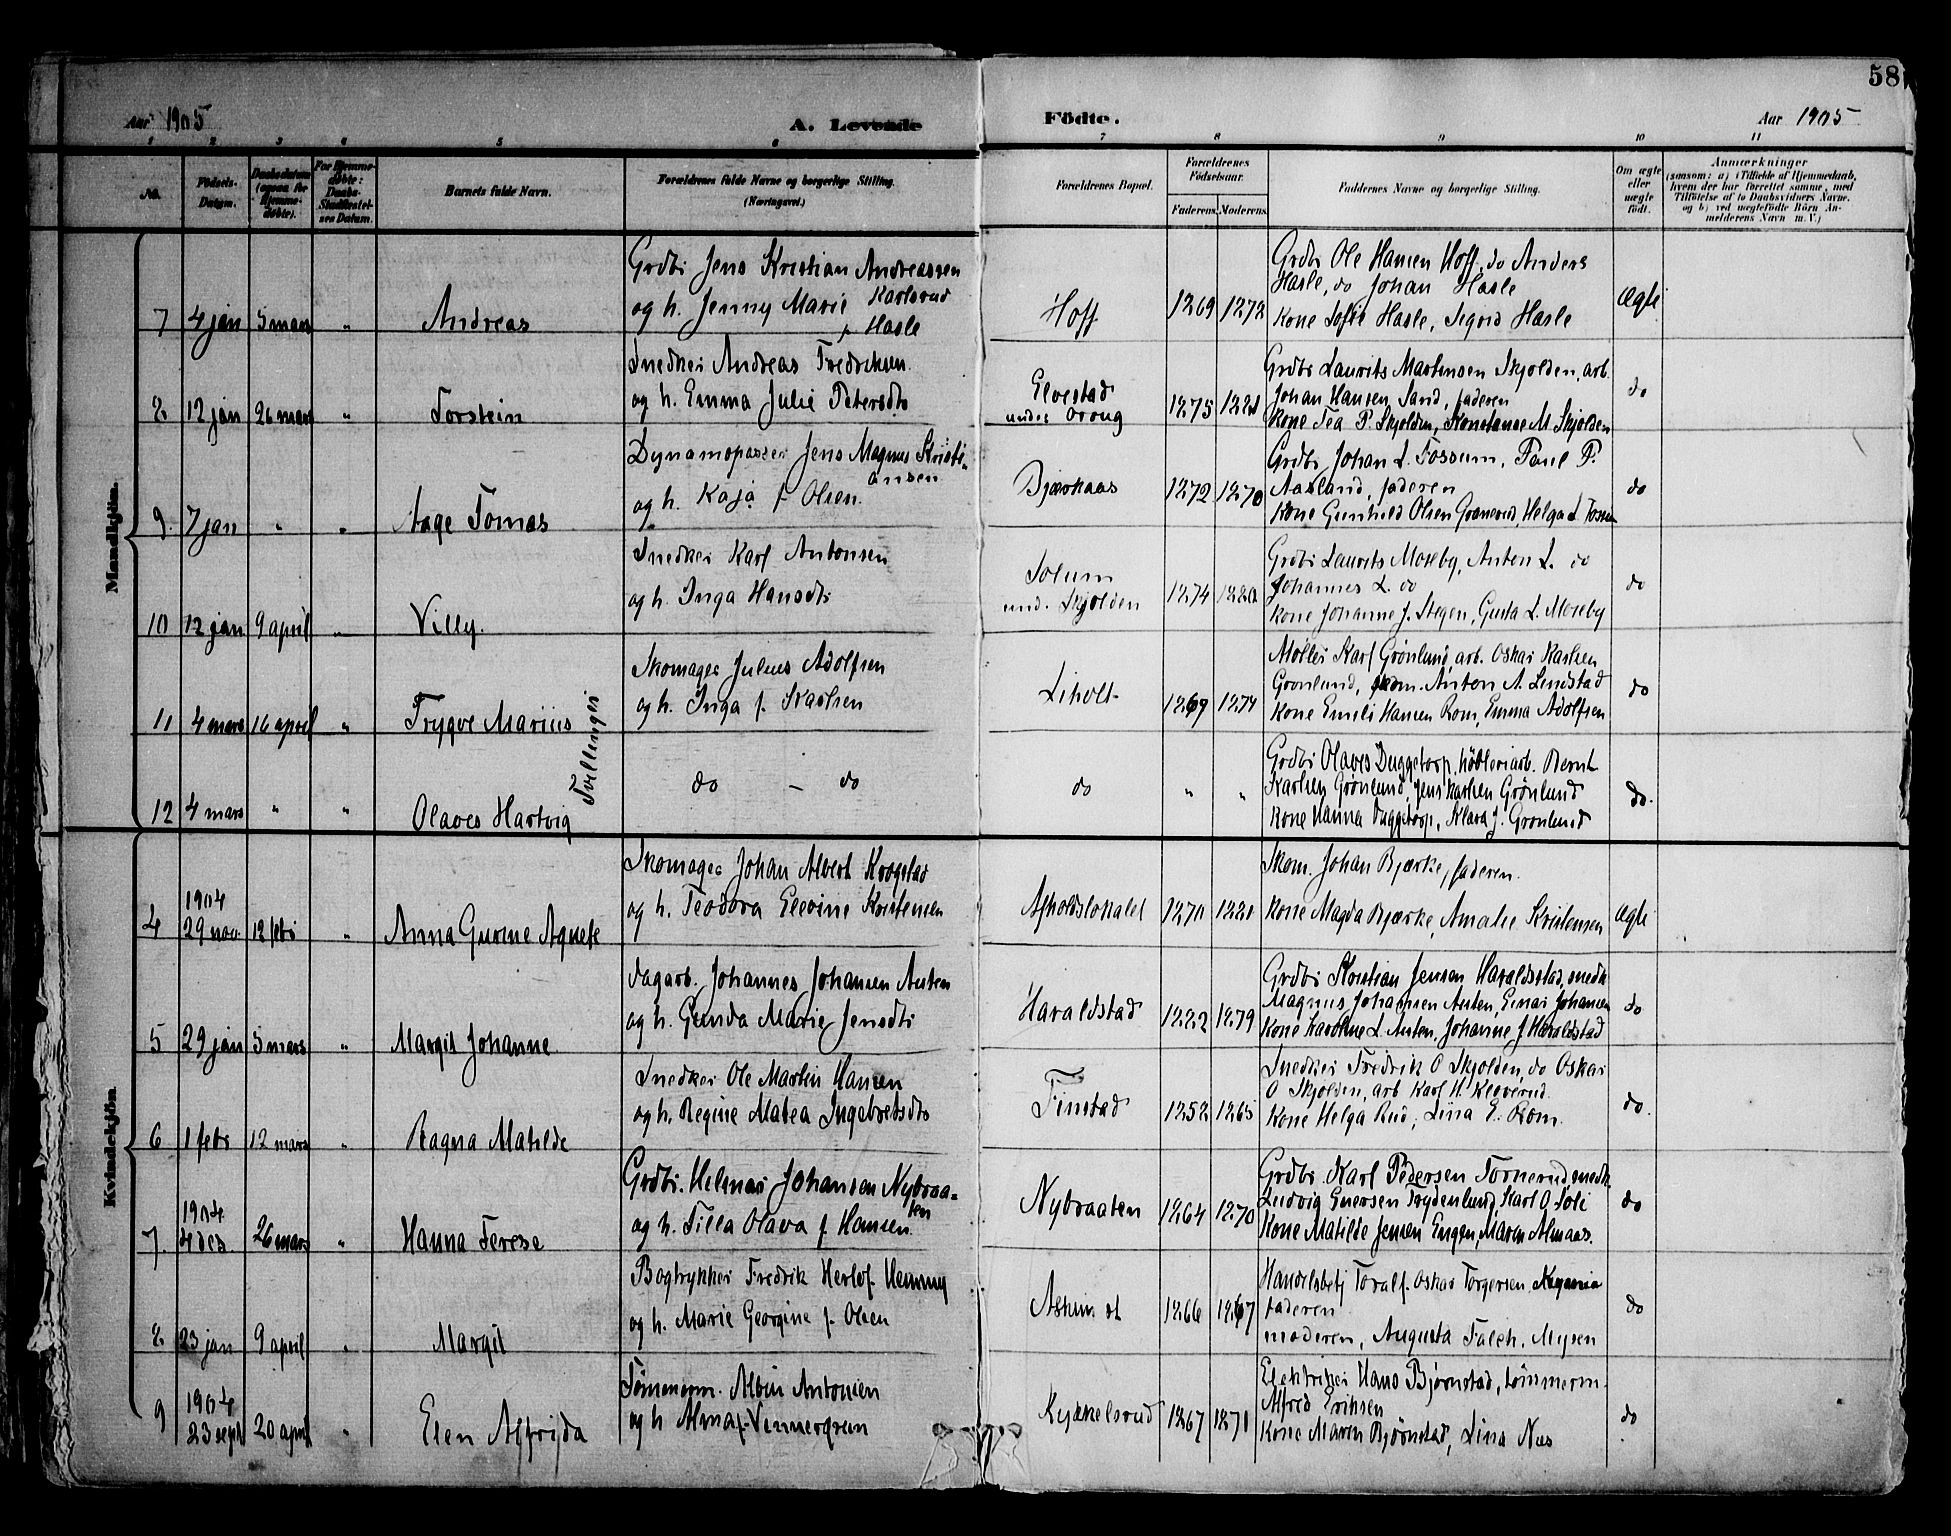 58
Aar 1905
A. Levende
Födte.
Aar 1905
1 2 3 4 5 6 7 8 9 10 11
No.
Födsels-
Datum.
Daabsdatum
(ogsaa for
Hjemme-
döbte).
For Hjemme-
döbte:
Daabs-
Stadfæstel-
ses Datum.
Barnets fulde Navn.
Forældrenes fulde Navne og borgerlige Stilling.
(Næringsvei.)
Forældrenes Bopæl.
Forældrenes
Födselsaar.
Faderens. Moderens.
Faddernes Navne og borgerlige Stilling.
Om ægte
eller
uægte
födt.
Anmærkninger
(saasom: a) i Tilfælde af Hjemmedaab,
hvem der har forrettet samme, med
Tilföielse af to Daabsvidners Navne.
og b) ved uægtefödte Börn An-
melderens Navn m. V.)
Mandkjön.
7 4 jan 5 mars " Andreas
Grdbr Jens Kristian Andreassen
og h. Jenny Marie Karlsrud
f. Hasle
Hoff
1869 1872
Grdbr Ole Hansen Hoff, do Anders
Hasle, do Johan Hasle
Kone Sofie Hasle, Sigrid Hasle
Ægte
8. 12 jan 26 mars " Torstein
Snedker Andreas Fredriksen
og h. Emma Julie Petersdtr
Elvestad
under Oraug
1875 1881
Grdbr Laurits Martensen Skjolden, arb.
Johan Hansen Sand, faderen
Kone Tea P. Skjolden, Konstanse M. Skjolden
do
9. 7 jan " " Aage Tomas
Dynamopasser Jens Magnus Kristi-
ansen
og h. Kaja f. Olsen.
Bjærkaas
1872 1870
Grdbr Johan L. Fossum, Paul P.
Aasland, faderen
Kone Gunhild Olsen Granerud, Helga L. Fossum
do
10 12 jan 9 april " Villy.
Snedker Karl Antonsen
og h. Inga Hansdtr
Solum
und. Skjolden
1874 1880
Grdbr Laurits Moseby, Anton L. do
Johannes L. do
Kone Johanne J. Stegen, Gusta L. Moseby
do
11 4 mars 16 april " Trygve Marius
Tvillinger
Skomager Julius Adolfsen
og h. Inga f. Karlsen
Liholt
1869 1874
Møller Karl Grønlund, arb. Oskar Karlsen
Grønlund, skom. Anton A. Lundstad
Kone Emili Hansen Rom, Emma Adolfsen
do
12 4 mars " " Olaves Hartvig
do - do
do " "
Grdbr Olaves Duggetorp, høvleriarb. Bernt
Karlsen Grønlund, Jens Karlsen Grønlund
Kone Hanna Duggetorp, Klara J. Grønlund
do.
Kvindekjön
4
1904
29 nov 12 febr " Anna Gurine Agnete
Skomager Johan Albert Krogstad
og h. Teodora Elevine Kristensen
Afholdslokalet
1870 1881
Skom. Johan Bjærke, faderen.
Kone Magda Bjærke, Amalie Kristensen
Ægte
5 29 jan 5 mars " Margit Johanne
Dagarb. Johannes Johansen Auten
og h. Gunda Marie Jensdtr
Haraldstad
1882 1879
Grdbr Kristian Jensen Haraldstad, snedk
Magnus Johansen Auten, Einar Johansen
Kone Karoline L. Auten, Johanne J Haraldstad
do
6 1 febr 12 mars " Ragna Matilde
Snedker Ole Martin Hansen
og h. Regine Matea Ingebretsdtr
Finstad
1852 1865
Snedker Fredrik O Skjolden, do Oskar
O Skjolden, arb Karl H. Kløverud.
Kone Helga Rud, Lina E. Rom.
do.
7.
1904
4 des. 26 mars " Hanna Terese
Grdbr. Helmer Johansen Nybraa-
ten
og h. Tilla Olava f. Hansen.
Nybraaten
1864 1870
Grdbr Karl Pedersen Tornerud, snedk
Ludvig Evensen Frydenlund, Karl O. Soli
Kone Matilde Jensen Engen, Maren Almaas.
do
8. 23 jan 9 april " Margit
Bogtrykker Fredrik Herlof Henny
og h. Marie Georgine f. Olsen
Askim st
1866 1867
Handelsbetj Toralf Oskar Torgersen
faderen
moderen, Augusta Falch, Mysen
do
9
1904
23 sept 20 april " Elen Alfrida
Tømmerm. Albin Antonsen
og h Alma f. Vennergren
Kykkelsrud
1867 1871
Elektriker Hans Bjørnstad, tømmerm.
Alfred Eriksen
Kone Maren Bjørnstad, Lina Næs
do